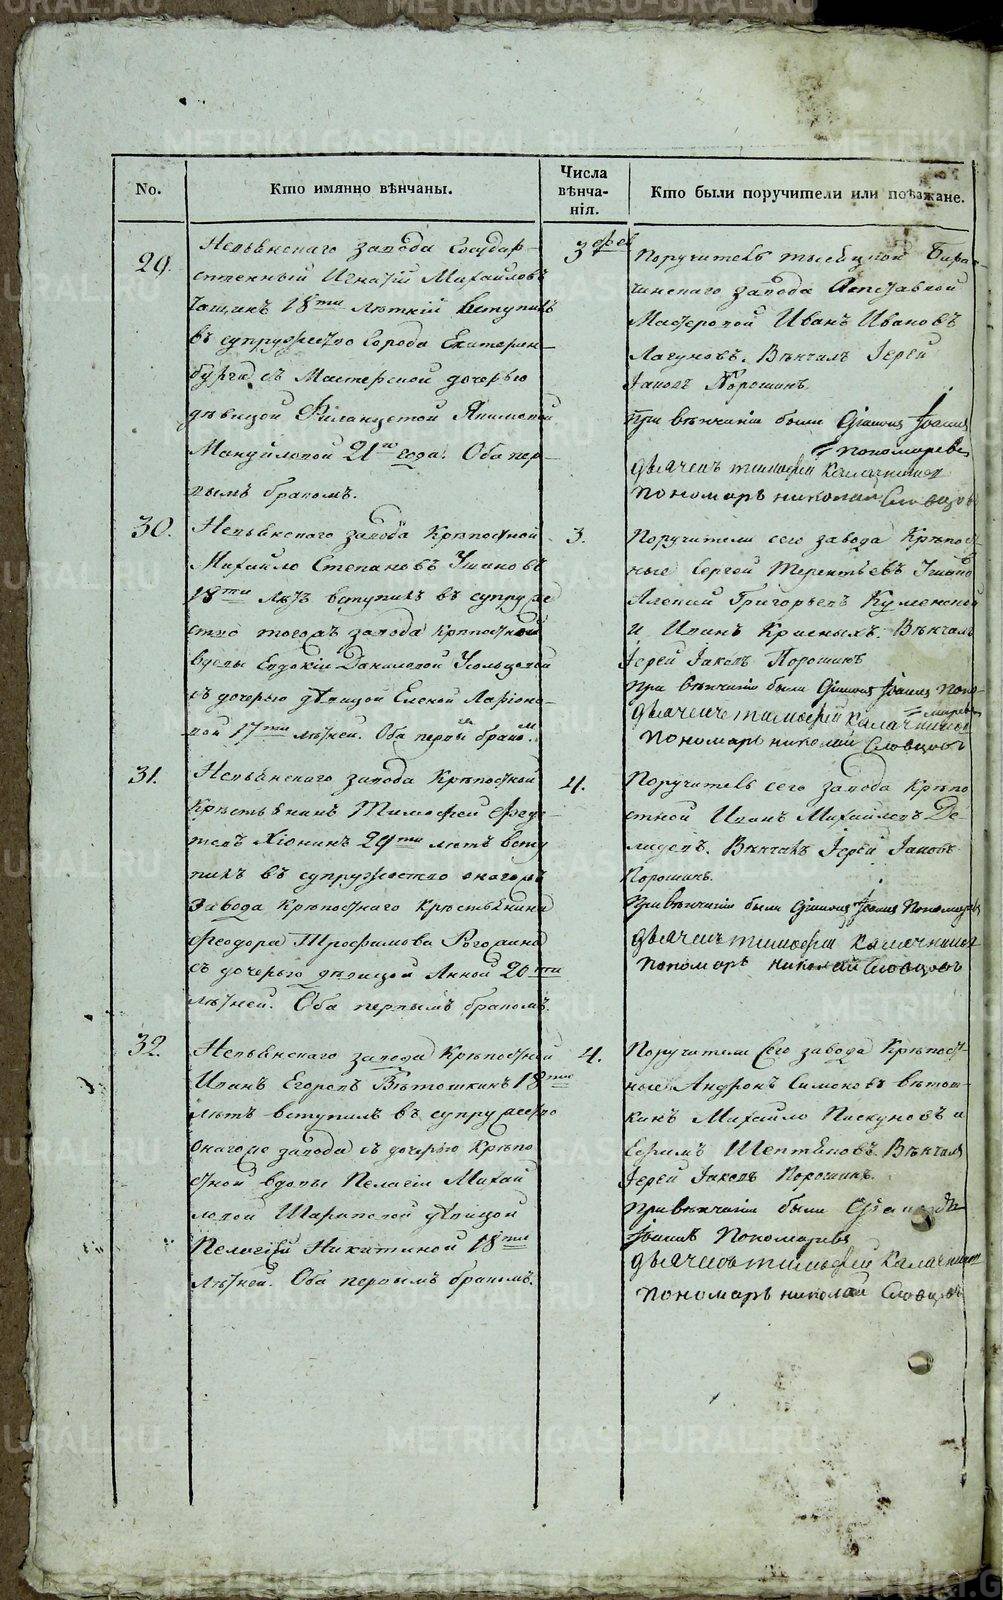 No.
Кто имянно вѣнчаны.
Числа
вѣнча-
нія.
Кто были поручители или поѣзжане.
29.
Невьянскаго завода Государ-
ственный Игнатій Михайловъ
18ти лѣтній вступилъ
въ супружество Города Екатерин-
бурга съ Мастерской дочерью
дѣвицой
21го года. Оба пер-
вымъ бракомъ.
3 фев
Поручитель
завода
Мастеровой Иванъ Ивановъ
Лагуновъ. Вѣнчалъ Іерей
Іаковъ Порошинъ.
При вѣнчаніи были Діаконъ Іоаннъ
Пономаревъ
дьячекъ тимофей Калачников
пономарь николай Словцовъ
30.
Невьянскаго завода Крѣпостной
Михайло Степановъ Ушаковъ
18ти лѣтъ вступилъ въ супруже
ство тогожъ завода крѣпостной
вдовы Евдокіи Даниловой
съ дочерью дѣвицой Еленой Ларіоно-
вой 17ти лѣтней. Оба первы бракомъ.
3.
Поручители сего завода Крѣпост-
ные Сергей Терентьевъ Ушаковъ
Алексий Григорьевъ
и Иванъ Красныхъ. Вѣнчалъ
Іерей Іаковъ Порошинъ
При вѣнчаніи были Діаконъ Іоаннъ Поно-
маревъ
дьячекъ тимофей Калачников
пономарь николай Словцовъ
31.
Невьянскаго завода Крѣпостной
Крестьянинъ Тимофей Федо-
товъ Хіонинъ 29ти лѣтъ всту
пилъ въ супружество онагожъ
завода Крѣпостнаго Крестьянина
Феодора Трофимова
съ дочерью дѣвицой Анной 20ти
лѣтней. Оба первымъ бракомъ.
4.
Поручитель сего завода Крѣпо
стной Иванъ Михайловъ Де
мидовъ. Вѣнчалъ Іерей Іаковъ
Порошинъ.
При вѣнчаніи были Діаконъ Іоаннъ Пономаревъ
дьячекъ тимофей Калачников
пономарь николай Словцовъ
32.
Невьянскаго завода Крѣпостной
Иванъ Егоровъ Вѣтошкинъ 18ти
лѣтъ вступилъ въ супружество
онагоже завода съ дочерью Крѣпо
стной вдовы Пелагіи Михай
ловой Шараповой дѣвицой
Пелагіей Никитиной 18ти
лѣтней. Оба первымъ бракомъ.
4.
Поручители Сего завода Крѣпост-
ные Андронъ Симоновъ вѣтош-
кинъ Михайло Пискуновъ и
Ефимъ Вѣнчалъ
Іерей Іаковъ Порошинъ.
При вѣнчаніи были Діаконъ
Іоаннъ Пономаревъ
дьячекъ тимофей Калачников
пономарь николай Словцовъ
METRIKI.GASO-URAL.RU